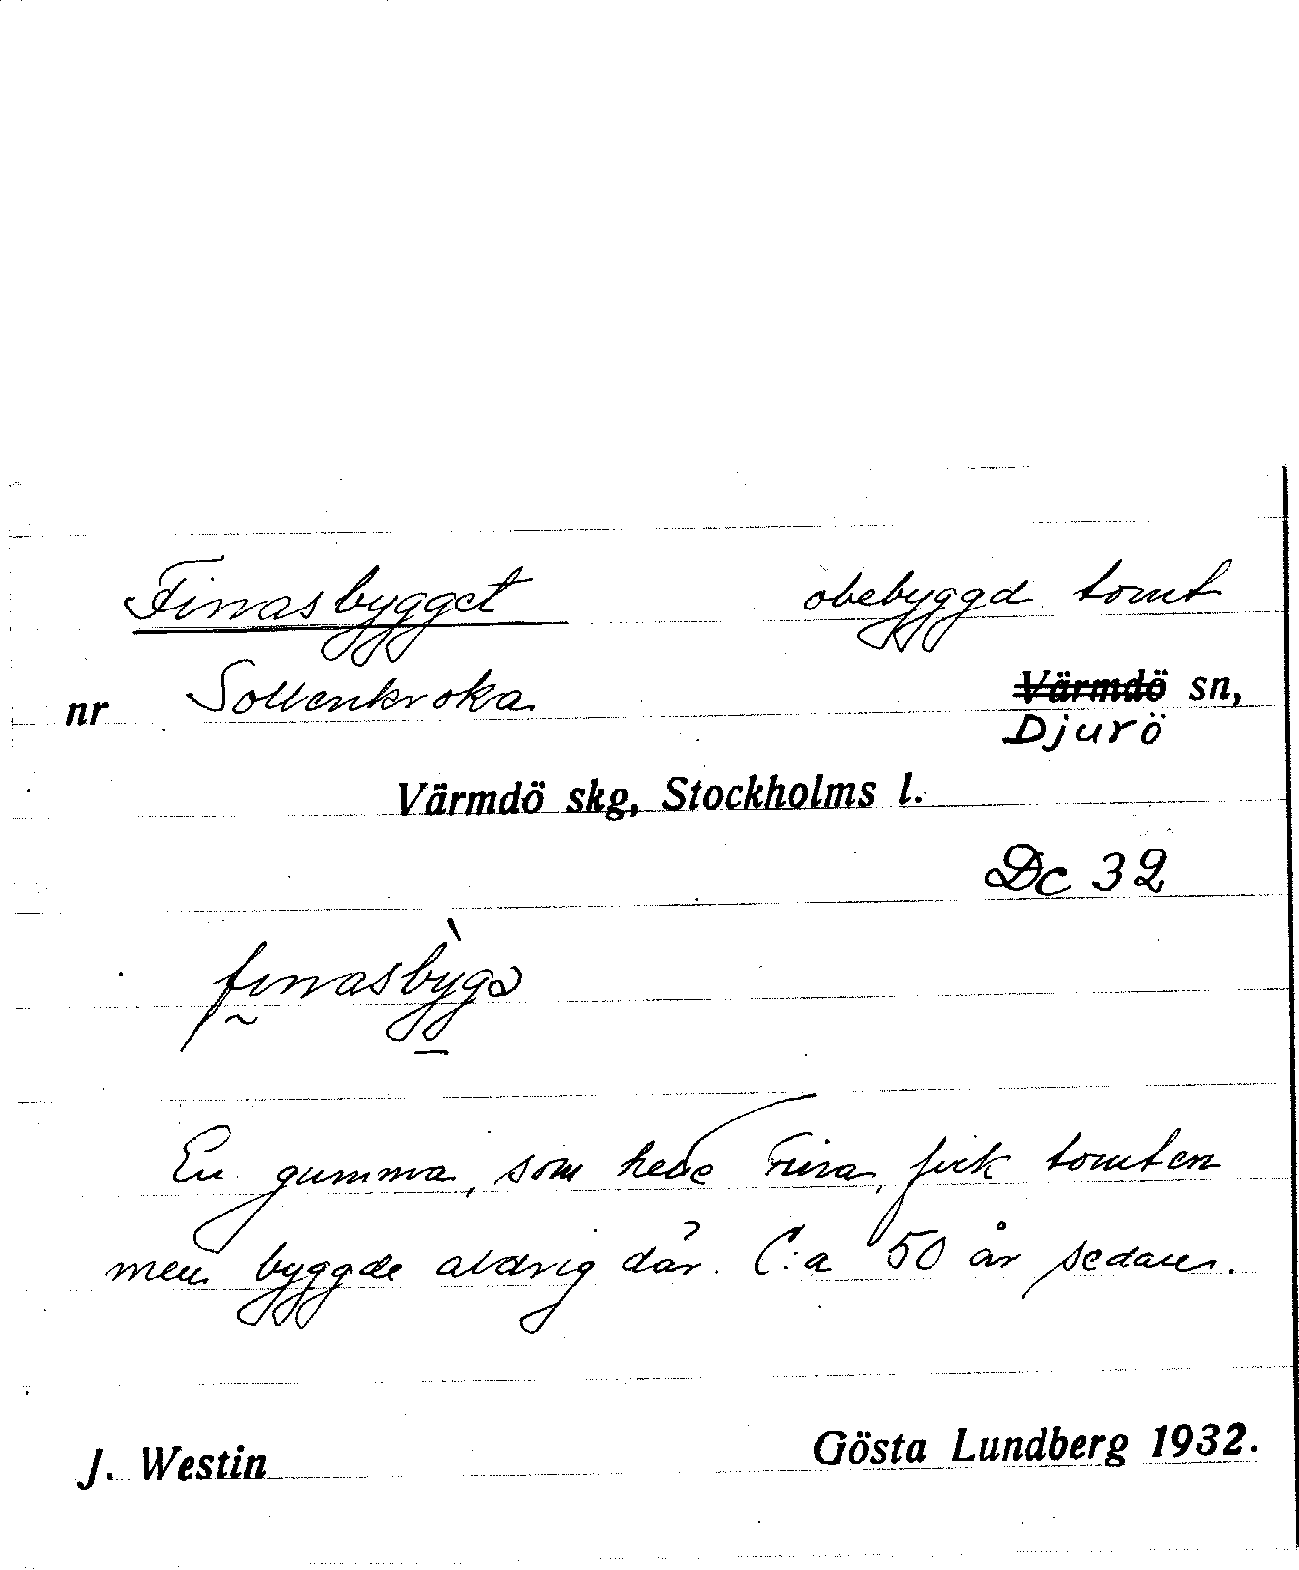 Finasbygget obebyggd tomt
nr Sollenkroka ~~Värmdö~~ sn,
Djurö
Värmdö skg, Stockholms l.
Dc 32
finasbỳgə
En gumma, som hette Fina, fick tomten
men byggde aldrig där. C:a 50 år sedan.
J. Westin Gösta Lundberg 1932.